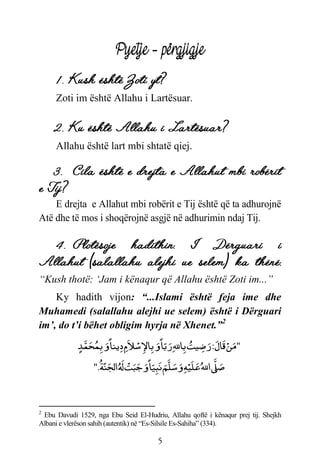 Pyetje - përgjigje
1. Kush është Zoti yt?
Zoti im është Allahu i Lartësuar.
2. Ku është Allahu i Lartësuar?
Allahu është lart mbi shtatë qiej.
3. Cila është e drejta e Allahut mbi robërit
e Tij?
E drejta e Allahut mbi robërit e Tij është që ta adhurojnë
Atë dhe të mos i shoqërojnë asgjë në adhurimin ndaj Tij.
4. Plotësoje hadithin: I Dërguari i
Allahut (salalallahu alejhi ue selem) ka thënë:
“Kush thotë: ‘Jam i kënaqur që Allahu është Zoti im...”
Ky hadith vijon: “...Islami është feja ime dhe
Muhamedi (salallahu alejhi ue selem) është i Dërguari
im’, do t’i bëhet obligim hyrja në Xhenet.”2
"مَنْ قَالَ: رَضِيتُ بِاللهِ رَبّاً وَبِالإِسْلاَمِ دِيناً وَبِمُحَمَّدٍ
صَلَّى اللهُ عَلَيْهِ وَسَلَّمَ نَبِيّاً وَجَبَتْ لَهُ الجَنَّةُ."
2 Ebu Davudi 1529, nga Ebu Seid El-Hudriu, Allahu qoftë i kënaqur prej tij. Shejkh
Albani e vlerëson sahih (autentik) në “Es-Silsile Es-Sahiha” (334).
5